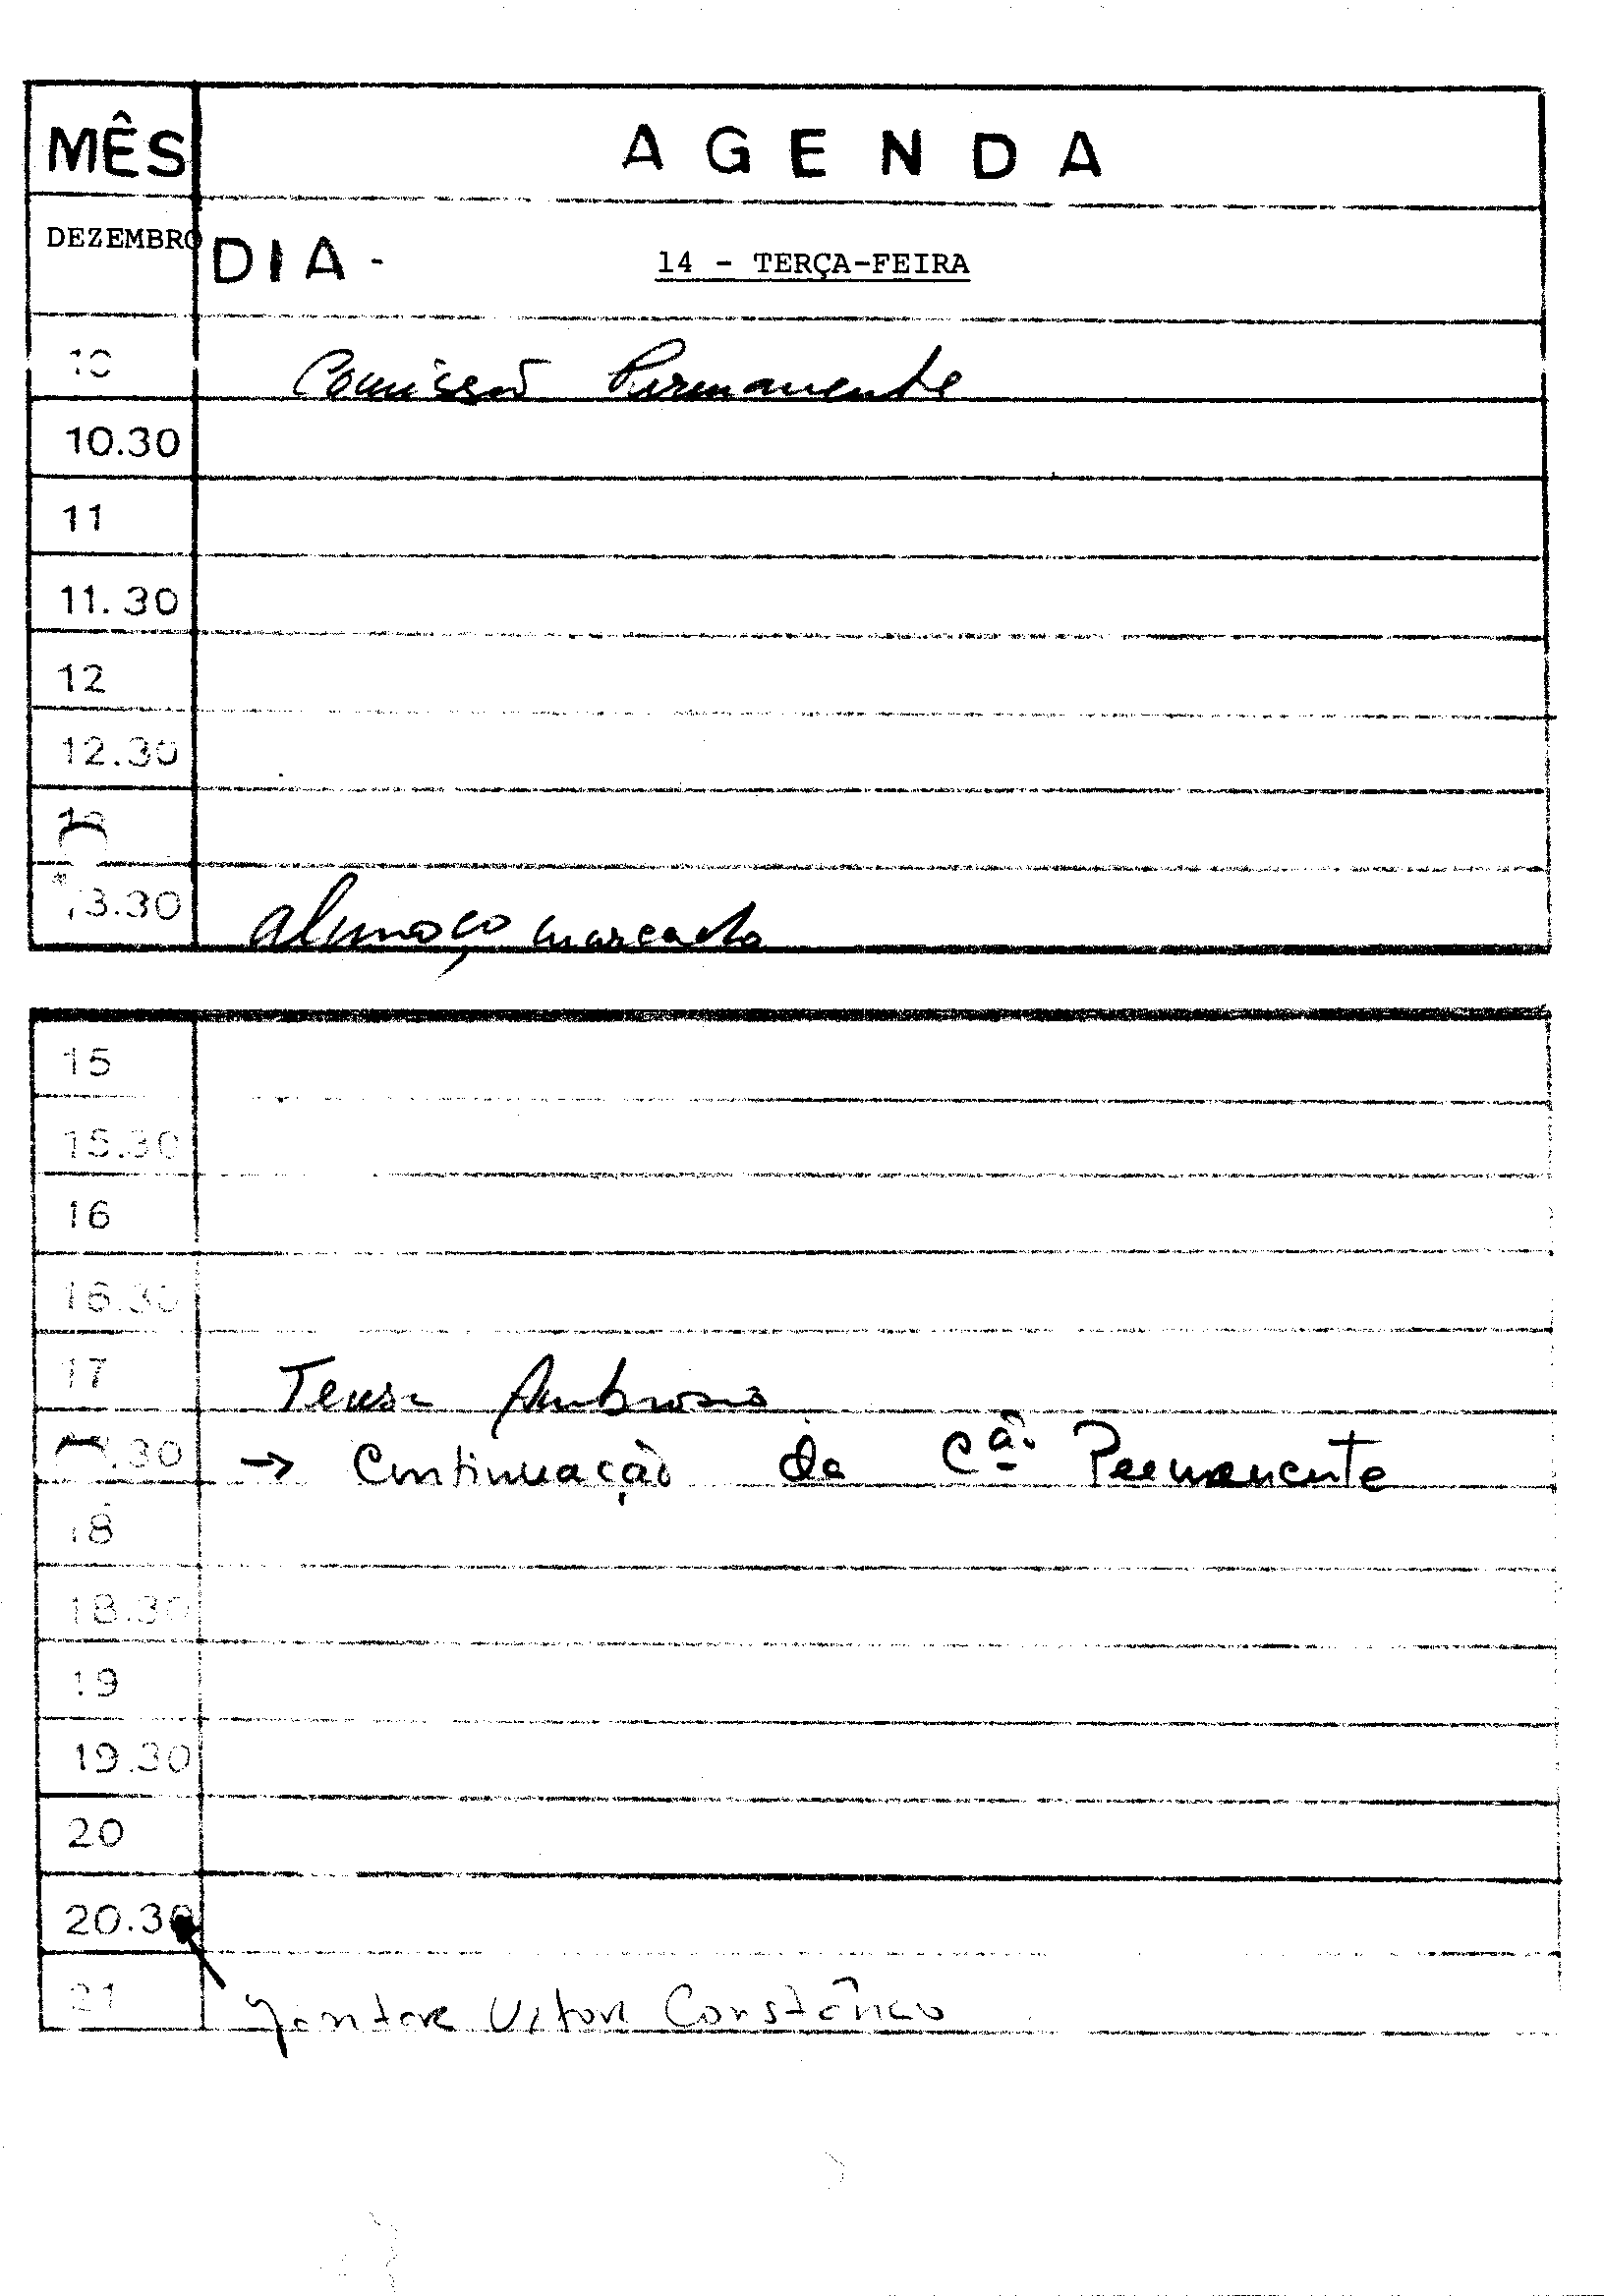 MÊS
AGENDA
DEZEMBRO
DIA - 14 - TERÇA-FEIRA
10 Comissão Permanente
10.30
11
11.30
12
12.30
13
13.30 almoço marcado
15
15.30
16
16.30
17 Teresa Ambrosio
17.30 → Continuação da Cã. Permanente
18
18.30
19
19.30
20
20.30
21 Jantar Vitor Constâncio